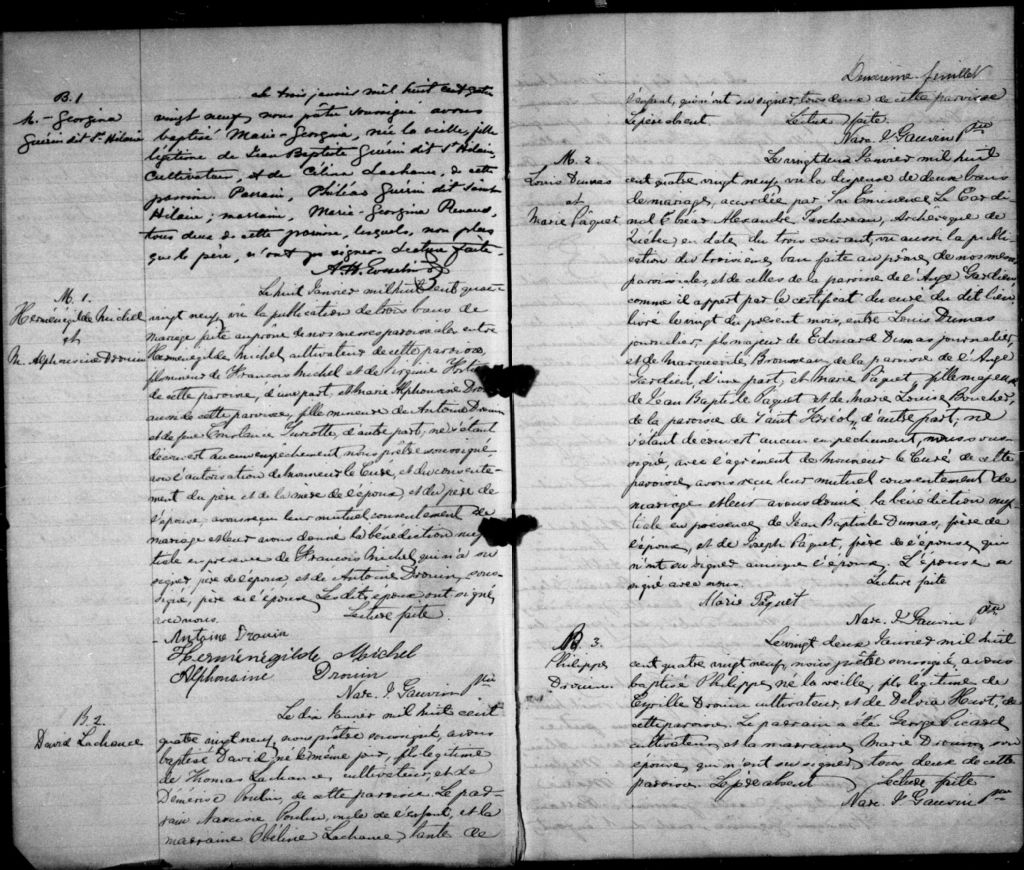 B.1
M.-Georgina
Guérin dit St. Hilaire
Le trois janvier mil huit cent quatre
vingt neuf, nous prêtre soussigné avons
baptisé Marie-Georgina, née la veille, fille
légitime de Jean Baptiste Guérin dit St. Hilaire,
cultivateur, et de Célina Lachance, de cette
paroisse. Parrain, Philéas Guérin dit Saint
Hilaire; marraine, Marie-Georgina Renaud,
tous deux de cette paroisse, lesquels, non plus
que le père, n'ont pu signer. Lecture faite.
M. 1.
Herménégilde Michel
et
M. Alphonsine Drouin
Le huit Janvier mil huit cent quatre
vingt neuf, vu la publication de trois bans de
mariage faite au prône de nos messes paroissiales entre
Herménégilde Michel cultivateur de cette paroisse,
fils mineur de François Michel et de Virginie
de cette paroisse, d'une part, et Marie Alphonsine Drouin
aussi de cette paroisse, fille mineure de Antoine Drouin
et de feue Turcotte, d'autre part; ne s'étant
découvert aucun empêchement, nous prêtre soussigné
avec l'autorisation de monsieur le Curé, et du consente-
ment du père et de la mère de l'époux et du père de
l'épouse, avons reçu leur mutuel consentement de
mariage et leur avons donné la bénédiction nup-
tiale en présence de François Michel qui n'a su
signer, père de l'époux et de Antoine Drouin, sous-
signé, père de l'épouse. Les dits époux ont signé
avec nous. Lecture faite.
Antoine Drouin
Herménégilde Michel
Alphonsine Drouin
Narc. J. Gauvin Ptre
B.2
David Lachance
Le dix Janvier mil huit cent
quatre vingt neuf, nous prêtre soussigné, avons
baptisé David, né le même jour, fils légitime
de Thomas Lachance, cultivateur, et de
Démerise Poulin de cette paroisse. Le par-
rain Narcisse Poulin, oncle de l'enfant, et la
marraine Obéline Lachance, tante de
Deuxième feuillet
l'enfant, qui n'ont su signer, tous deux de cette paroisse
Le père absent. Lecture faite
Narc. J. Gauvin Ptre
M. 2
Louis Dumas
et
Marie Pâquet
Le vingt deux Janvier mil huit
cent quatre vingt neuf, vu la dispense de deux bans
de mariage, accordée par Son Eminence Le Cardi-
nal Elzéar Alexandre Taschereau, Archevêque de
Québec, en date du trois courant, vu aussi la publi-
cation du troisième ban faite au prône de nos messes
paroissiales, et de celles de la paroisse de l'Ange Gardien,
comme il appert par le certificat du curé du dit lieu
livré le vingt du présent mois, entre Louis Dumas
journalier, fils majeur de Edouard Dumas journalier,
et de Marguerite Brousseau, de la paroisse de l'Ange
Gardien, d'une part, et Marie Pâquet, fille majeure
de Jean Baptiste Pâquet et de Marie Louise Boucher,
de la paroisse de Saint d'autre part; ne
s'étant découvert aucun empêchement, nous sous-
signé, avec l'agrément de Monsieur le Curé de cette
paroisse, avons reçu leur mutuel consentement de
mariage et leur avons donné la bénédiction nup-
tiale en présence de Jean Baptiste Dumas, frère de
l'époux, et de Joseph Pâquet, frère de l'épouse, qui
n'ont su signer ainsi que l'époux. L'épouse a
signé avec nous. Lecture faite
Marie Pâquet
Narc. J. Gauvin Ptre
B. 3
Philippe
Drouin
Le vingt deux Janvier mil huit
cent quatre vingt neuf, nous prêtre soussigné, avons
baptisé Philippe, né la veille, fils légitime de
Cyrille Drouin cultivateur, et de Delvia Huot, de
cette paroisse. Le parrain a été George Picard
cultivateur, et la marraine Marie Drouin, son
épouse, qui n'ont su signer, tous deux de cette
paroisse. Le père absent Lecture faite
Narc. J. Gauvin Ptre